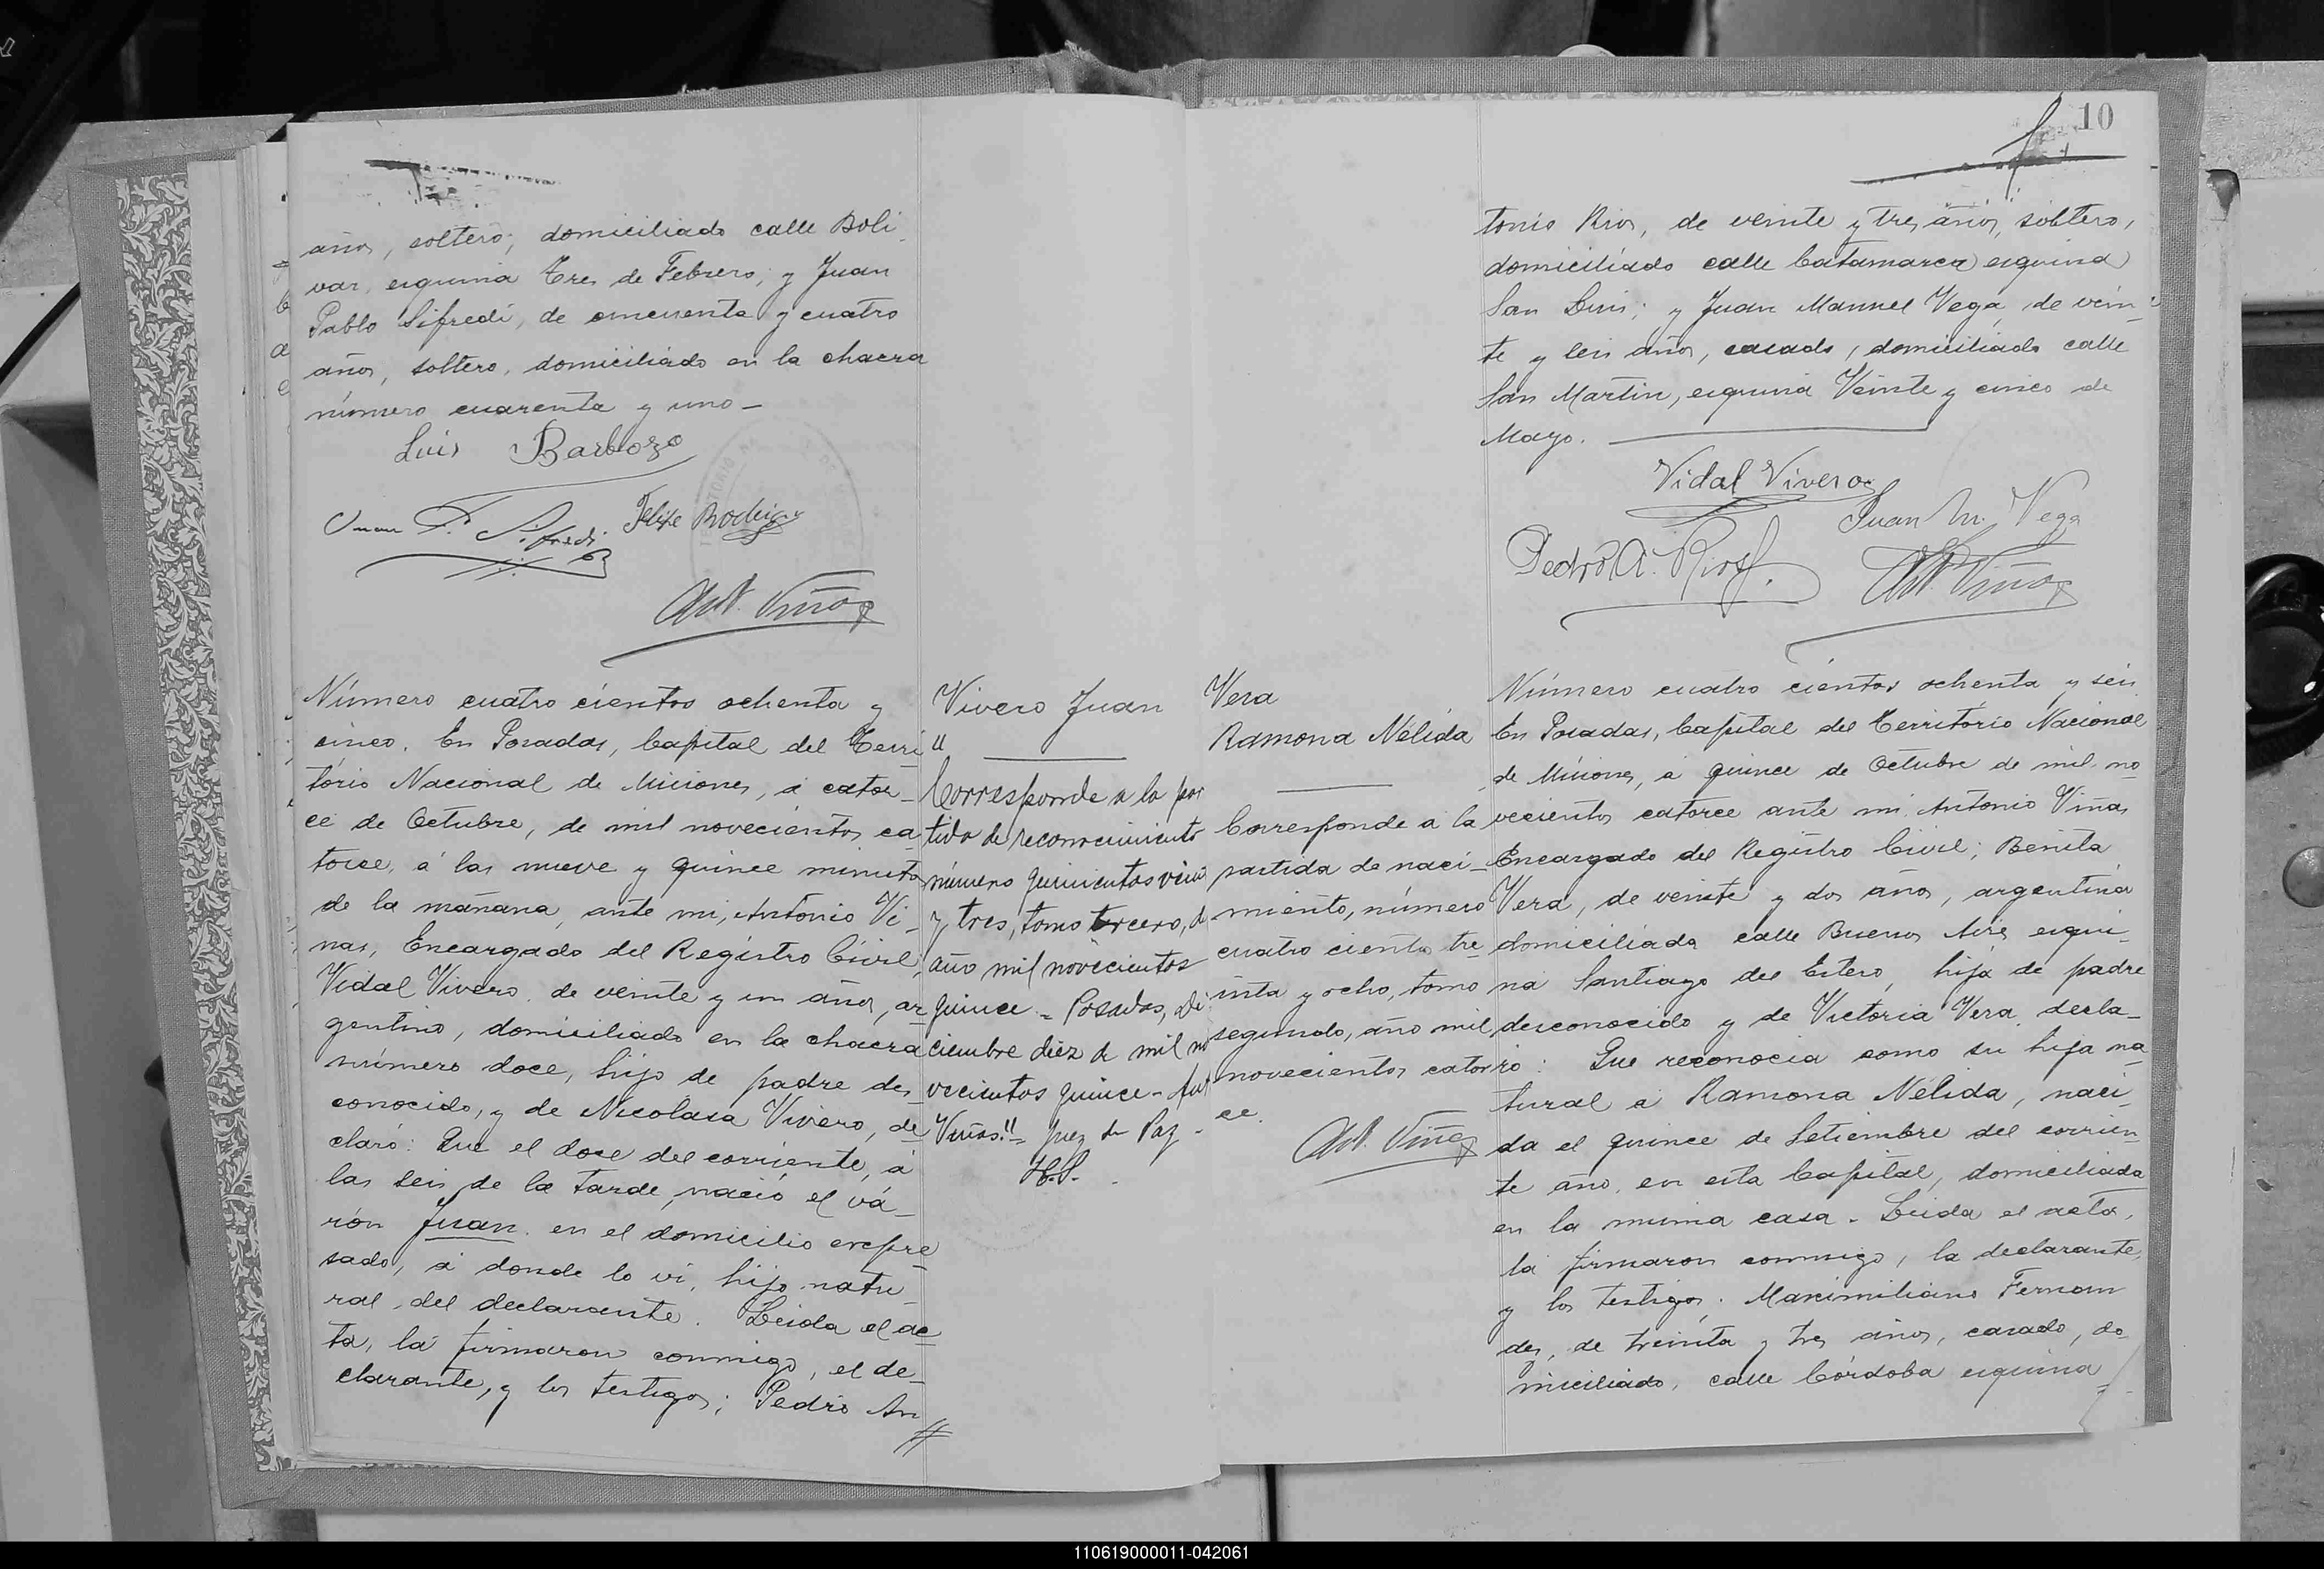 años, soltero; domiciliado calle Boli-
var, esquina Tres de Febrero; y Juan
Pablo Sifredi, de cincuenta y cuatro
años, soltero, domiciliado en la chacra
número cuarenta y uno-
Luis Barbozo
Juan P. Sifredi
Felipe
Ant. Viñas
Número cuatro cientos ochenta y
cinco. En Posadas, Capital del Terri
torio Nacional de Misiones, a cator-
ce de Octubre, de mil novecientos ca
torce, á las nueve y quince minutos
de la mañana, ante mi, Antonio Vi-
nas, Encargado del Registro Civil,
Vidal Vivero, de veinte y un años, ar
gentino, domiciliado en la chacra
número doce, hijo de padre des
conocido, y de Nicolasa Vivero, de
claró: Que el doce del corriente, á
las seis de la tarde, nació el va-
rón Juan. en el domicilio expre
sado, á donde lo ví, hijo natu-
ral, del declarante. Leida el ac
ta, la firmaron conmigo, el de-
clarante, y los testigos; Pedro An
Vivero Juan
"
Corresponde a la par
tida de reconocimiento
número quinientos veinte
y tres, tomo tercero, d
año mil novecientos
quince - Posadas, Di
ciembre diez de mil no
vecientos quince - Ant
Viñas."- Juez de Paz -
10
tonio Rios, de veinte y tres años, soltero,
domiciliado calle Catamarca esquina
San Luis; y Juan Manuel Vega, de vein-
te y seis años, casado, domiciliado calle
San Martin, esquina Veinte y cinco de
Mayo.
Vidal Vivero
Juan M. Vega
Pedro A. Rios
Ant. Viñas
Vera
Ramona Nélida
Corresponde a la
partida de naci-
miento, número
cuatro cientos tre
inta y ocho, tomo
segundo, año mil
novecientos cator
ce.
Ant. Viñas
Número cuatro cientos ochenta y seis
En Posadas, Capital del Territorio Nacional
de Misiones, a quince de Octubre de mil no
vecientos catorce ante mi Antonio Viñas
Encargado del Registro Civil; Benita
Vera, de veinte y dos años, argentina
domiciliada calle Buenos Aires esqui-
na Santiago del Estero, hija de padre
desconocido y de Victoria Vera, decla-
ró: Que reconocia como su hija na
tural a Ramona Nélida, naci-
da el quince de Setiembre del corrien
te año, en esta Capital, domiciliada
en la misma casa. Leida el acta,
la firmaron conmigo, la declarante,
y los testigos: Maximiliano Fernan
des, de treinta y tres años, casado, do-
miciliado, calle Córdoba esquina
110619000011-042061